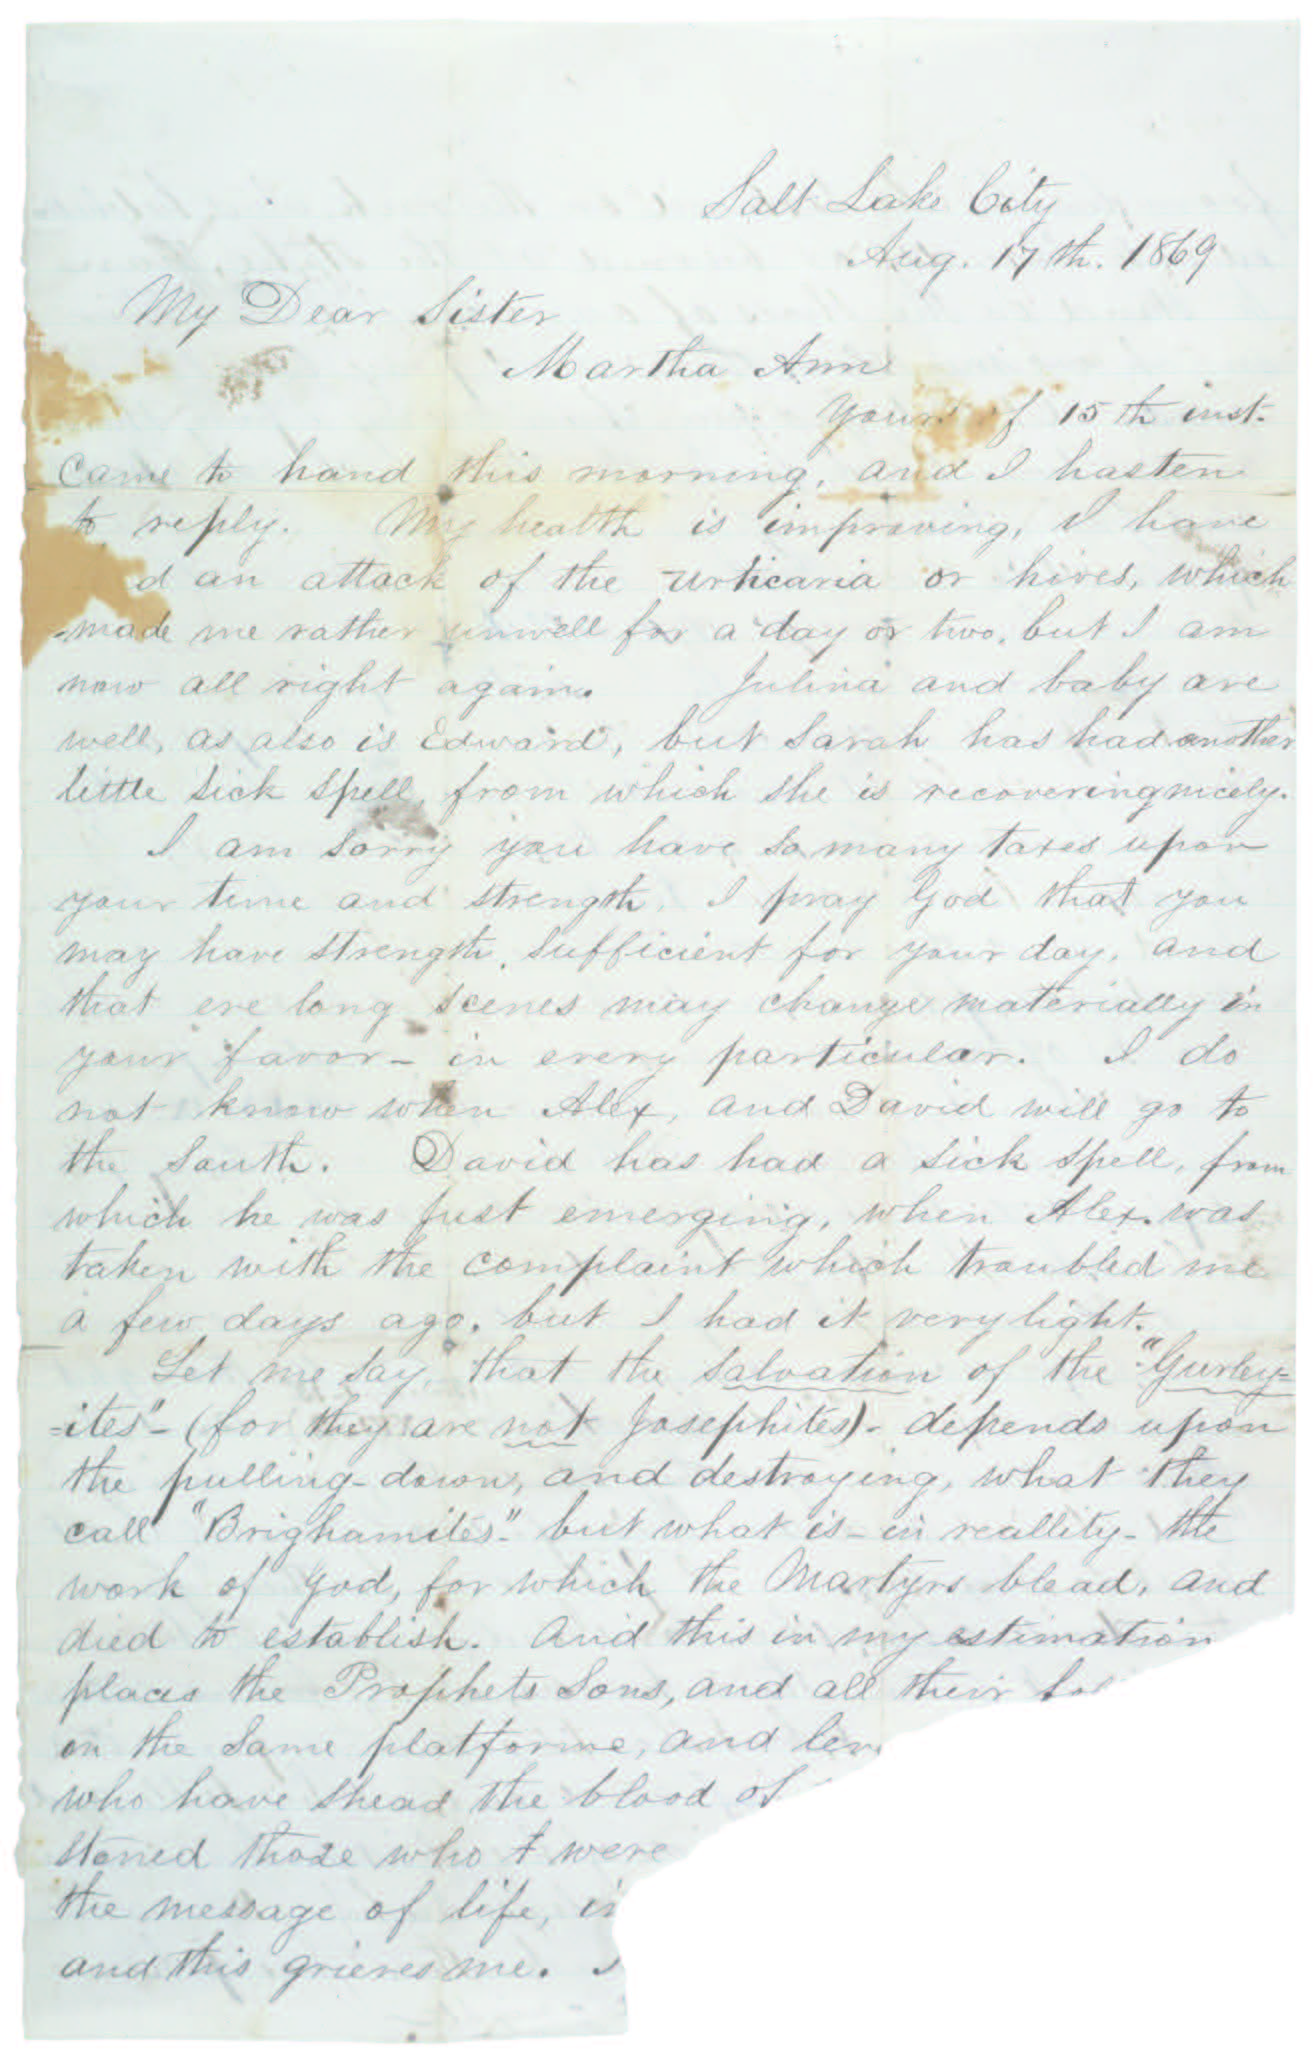 Salt Lake City
Aug. 17th. 1869
My Dear Sister
Martha Ann
Yours of 15th inst.
came to hand this morning, and I hasten
to reply. My health is improving, I have
d an attack of the urticaria or hives, which
made me rather unwell for a day or two, but I am
now all right again. Julina and baby are
well, as also is Edward, but Sarah has had another
little sick spell, from which she is recovering nicely.
I am sorry you have so many taxes upon
your time and strength, I pray God that you
may have strength, sufficient for your day, and
that ere long scenes may change materially in
your favor— in every particular. I do
not know when Alex, and David will go to
the South. David has had a sick spell, from
which he was just emerging, when Alex. was
taken with the complaint which troubled me
a few days ago, but I had it very light.
Let me say, that the salvation of the "Gurley=
=ites"— (for they are not Josephites)— depends upon
the pulling-down, and destroying, what they
call "Brighamites"— but what is— in reallity— the
work of God, for which the Martyrs blead, and
died to establish. And this in my estimation
places the Prophets Sons, and all their
on the same platforme, and
who have shead the blood of
stoned those who were
the message of life,
and this grieves me. I